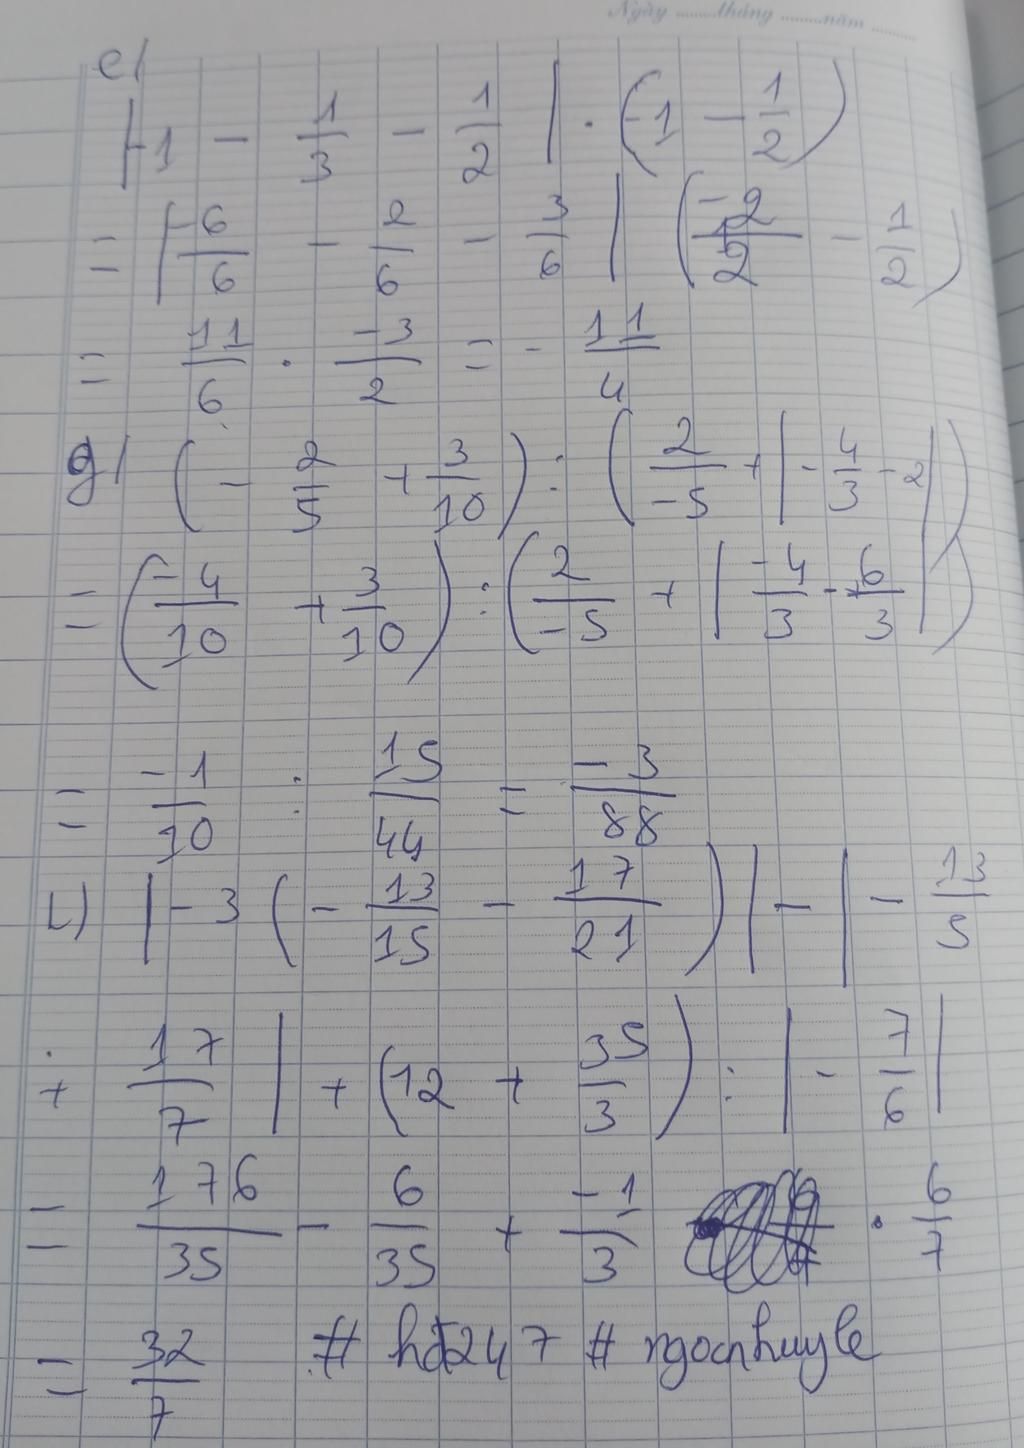 Ngày ........tháng ........năm .........
e/
|-1 - 1/3 - 1/2| . (-1 - 1/2)
= |-6/6 - 2/6 - 3/6| (-2/2 - 1/2)
= 11/6 . -3/2 = - 11/4
g/ (- 2/5 + 3/10) : (2/-5 + |- 4/3 - 2|)
= (-4/10 + 3/10) : (2/-5 + |-4/3 - 6/3|)
= -1/10 : 15/44 = -3/88
i) |-3 (- 13/15 - 17/21)| - |- 13/5
+ 17/7| + (12 + 35/3) : |- 7/6|
= 176/35 - 6/35 + -1/3 . 6/7
= 32/7 # hdt247 # ngocnhuyle